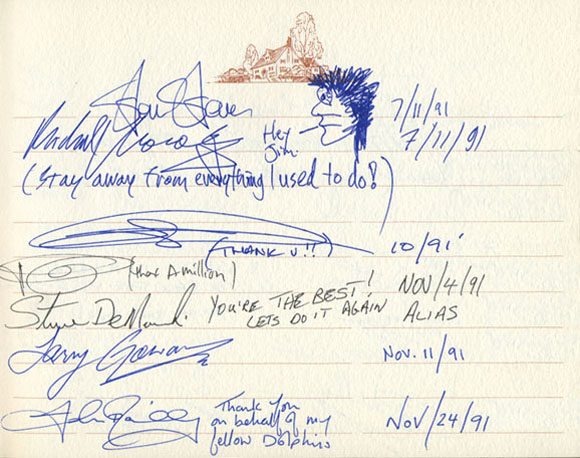 7/11/91
Hey Jim.
7/11/91
(Stay away from everything I used to do!)
(THANK U!!) 10/91
(thanx A million)
YOU'RE THE BEST! NOV/4/91
Steve DeMarchi LETS DO IT AGAIN ALIAS
Larry Gowan Nov. 11/91
Thank You
on behalf of my
fellow Dolphins
Nov/24/91